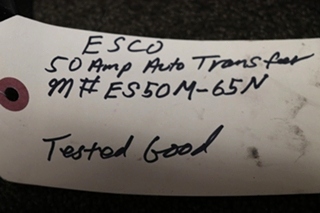 ESCO
50 Amp Auto Transfer
M# ES50M-65N
Tested Good